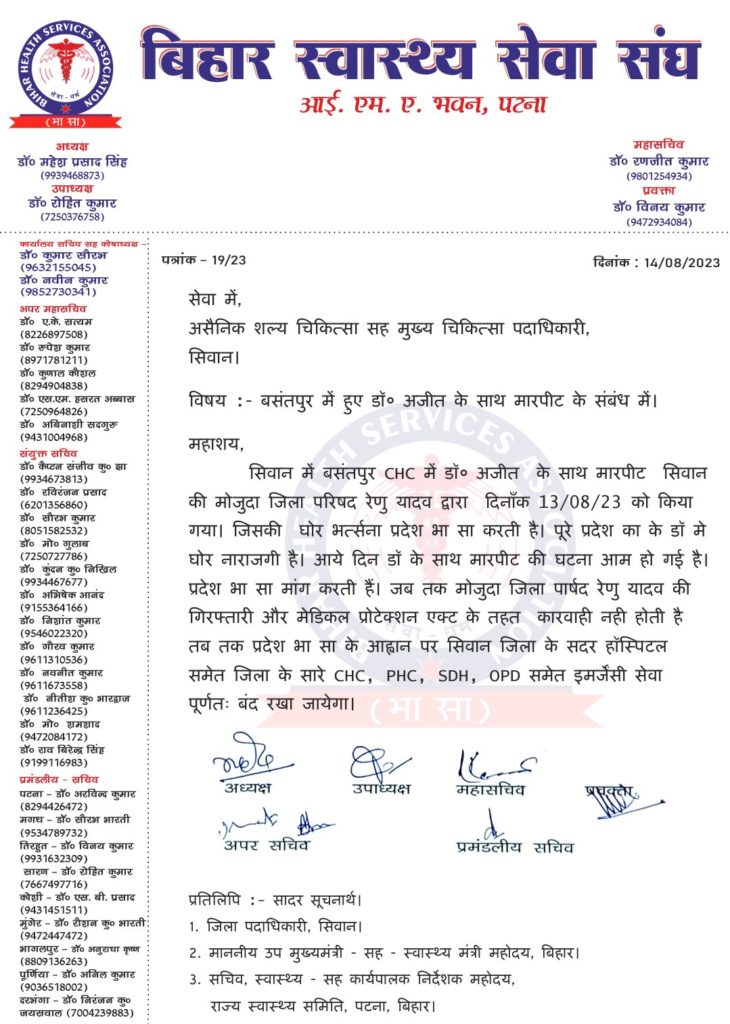 BIHAR HEALTH SERVICES ASSOCIATION
सेवा - धर्म
(भा सा)
बिहार स्वास्थ्य सेवा संघ
आई. एम. ए. भवन, पटना
अध्यक्ष
डॉ० महेश प्रसाद सिंह
(9939468873)
उपाध्यक्ष
डॉ० रोहित कुमार
(7250376758)
महासचिव
डॉ० रणजीत कुमार
(9801254934)
प्रवक्ता
डॉ० विनय कुमार
(9472934084)
कार्यालय सचिव सह कोषाध्यक्ष -
डॉ० कुमार सौरभ
(9632155045)
डॉ० नवीन कुमार
(9852730341)
अपर महासचिव
डॉ० ए.के. सत्यम
(8226897508)
डॉ० रूपेश कुमार
(8971781211)
डॉ० कुणाल कौशल
(8294904838)
डॉ० एस.एम. हसरत अब्बास
(7250964826)
डॉ० अबिनाशी सदगुरू
(9431004968)
संयुक्त सचिव
डॉ० कैप्टन संजीव कु० झा
(9934673813)
डॉ० रविरंजन प्रसाद
(6201356860)
डॉ० सौरभ कुमार
(8051582532)
डॉ० मो० गुलाब
(7250727786)
डॉ० कुंदन कु० निखिल
(9934467677)
डॉ० अभिषेक आनंद
(9155364166)
डॉ० निशांत कुमार
(9546022320)
डॉ० गौरव कुमार
(9611310536)
डॉ० नवनीत कुमार
(9611673558)
डॉ० नीतीश कु० भारद्वाज
(9611236425)
डॉ० मो० शमशाद
(9472084172)
डॉ० राव बिरेन्द्र सिंह
(9199116983)
प्रमंडलीय - सचिव
पटना - डॉ० अरविन्द कुमार
(8294426472)
मगध - डॉ० सौरभ भारती
(9534789732)
तिरहुत - डॉ० विनय कुमार
(9931632309)
सारण - डॉ० रोहित कुमार
(7667497716)
कोशी - डॉ० एस. बी. प्रसाद
(9431451511)
मुंगेर - डॉ० रौशन कु० भारती
(9472447472)
भागलपुर - डॉ० अनुराधा कृष्ण
(8809136263)
पूर्णिया - डॉ० अनिल कुमार
(9036518002)
दरभंगा - डॉ० निरंजन कु०
जयसवाल (7004239883)
पत्रांक - 19/23
दिनांक : 14/08/2023
सेवा में,
असैनिक शल्य चिकित्सा सह मुख्य चिकित्सा पदाधिकारी,
सिवान।
विषय :- बसंतपुर में हुए डॉ० अजीत के साथ मारपीट के संबंध में।
महाशय,
सिवान में बसंतपुर CHC में डॉ० अजीत के साथ मारपीट सिवान
की मोजुदा जिला परिषद रेणु यादव द्वारा दिनाँक 13/08/23 को किया
गया। जिसकी घोर भर्त्सना प्रदेश भा सा करती है। पूरे प्रदेश का के डॉ मे
घोर नाराजगी है। आये दिन डॉ के साथ मारपीट की घटना आम हो गई है।
प्रदेश भा सा मांग करती हैं। जब तक मोजुदा जिला पार्षद रेणु यादव की
गिरफ्तारी और मेडिकल प्रोटेक्शन एक्ट के तहत कारवाही नही होती है
तब तक प्रदेश भा सा के आह्वान पर सिवान जिला के सदर हॉस्पिटल
समेत जिला के सारे CHC, PHC, SDH, OPD समेत इमर्जेंसी सेवा
पूर्णतः बंद रखा जायेगा।
अध्यक्ष उपाध्यक्ष महासचिव प्रवक्ता
अपर सचिव प्रमंडलीय सचिव
प्रतिलिपि :- सादर सूचनार्थ।
1. जिला पदाधिकारी, सिवान।
2. माननीय उप मुख्यमंत्री - सह - स्वास्थ्य मंत्री महोदय, बिहार।
3. सचिव, स्वास्थ्य - सह कार्यपालक निर्देशक महोदय,
राज्य स्वास्थ्य समिति, पटना, बिहार।